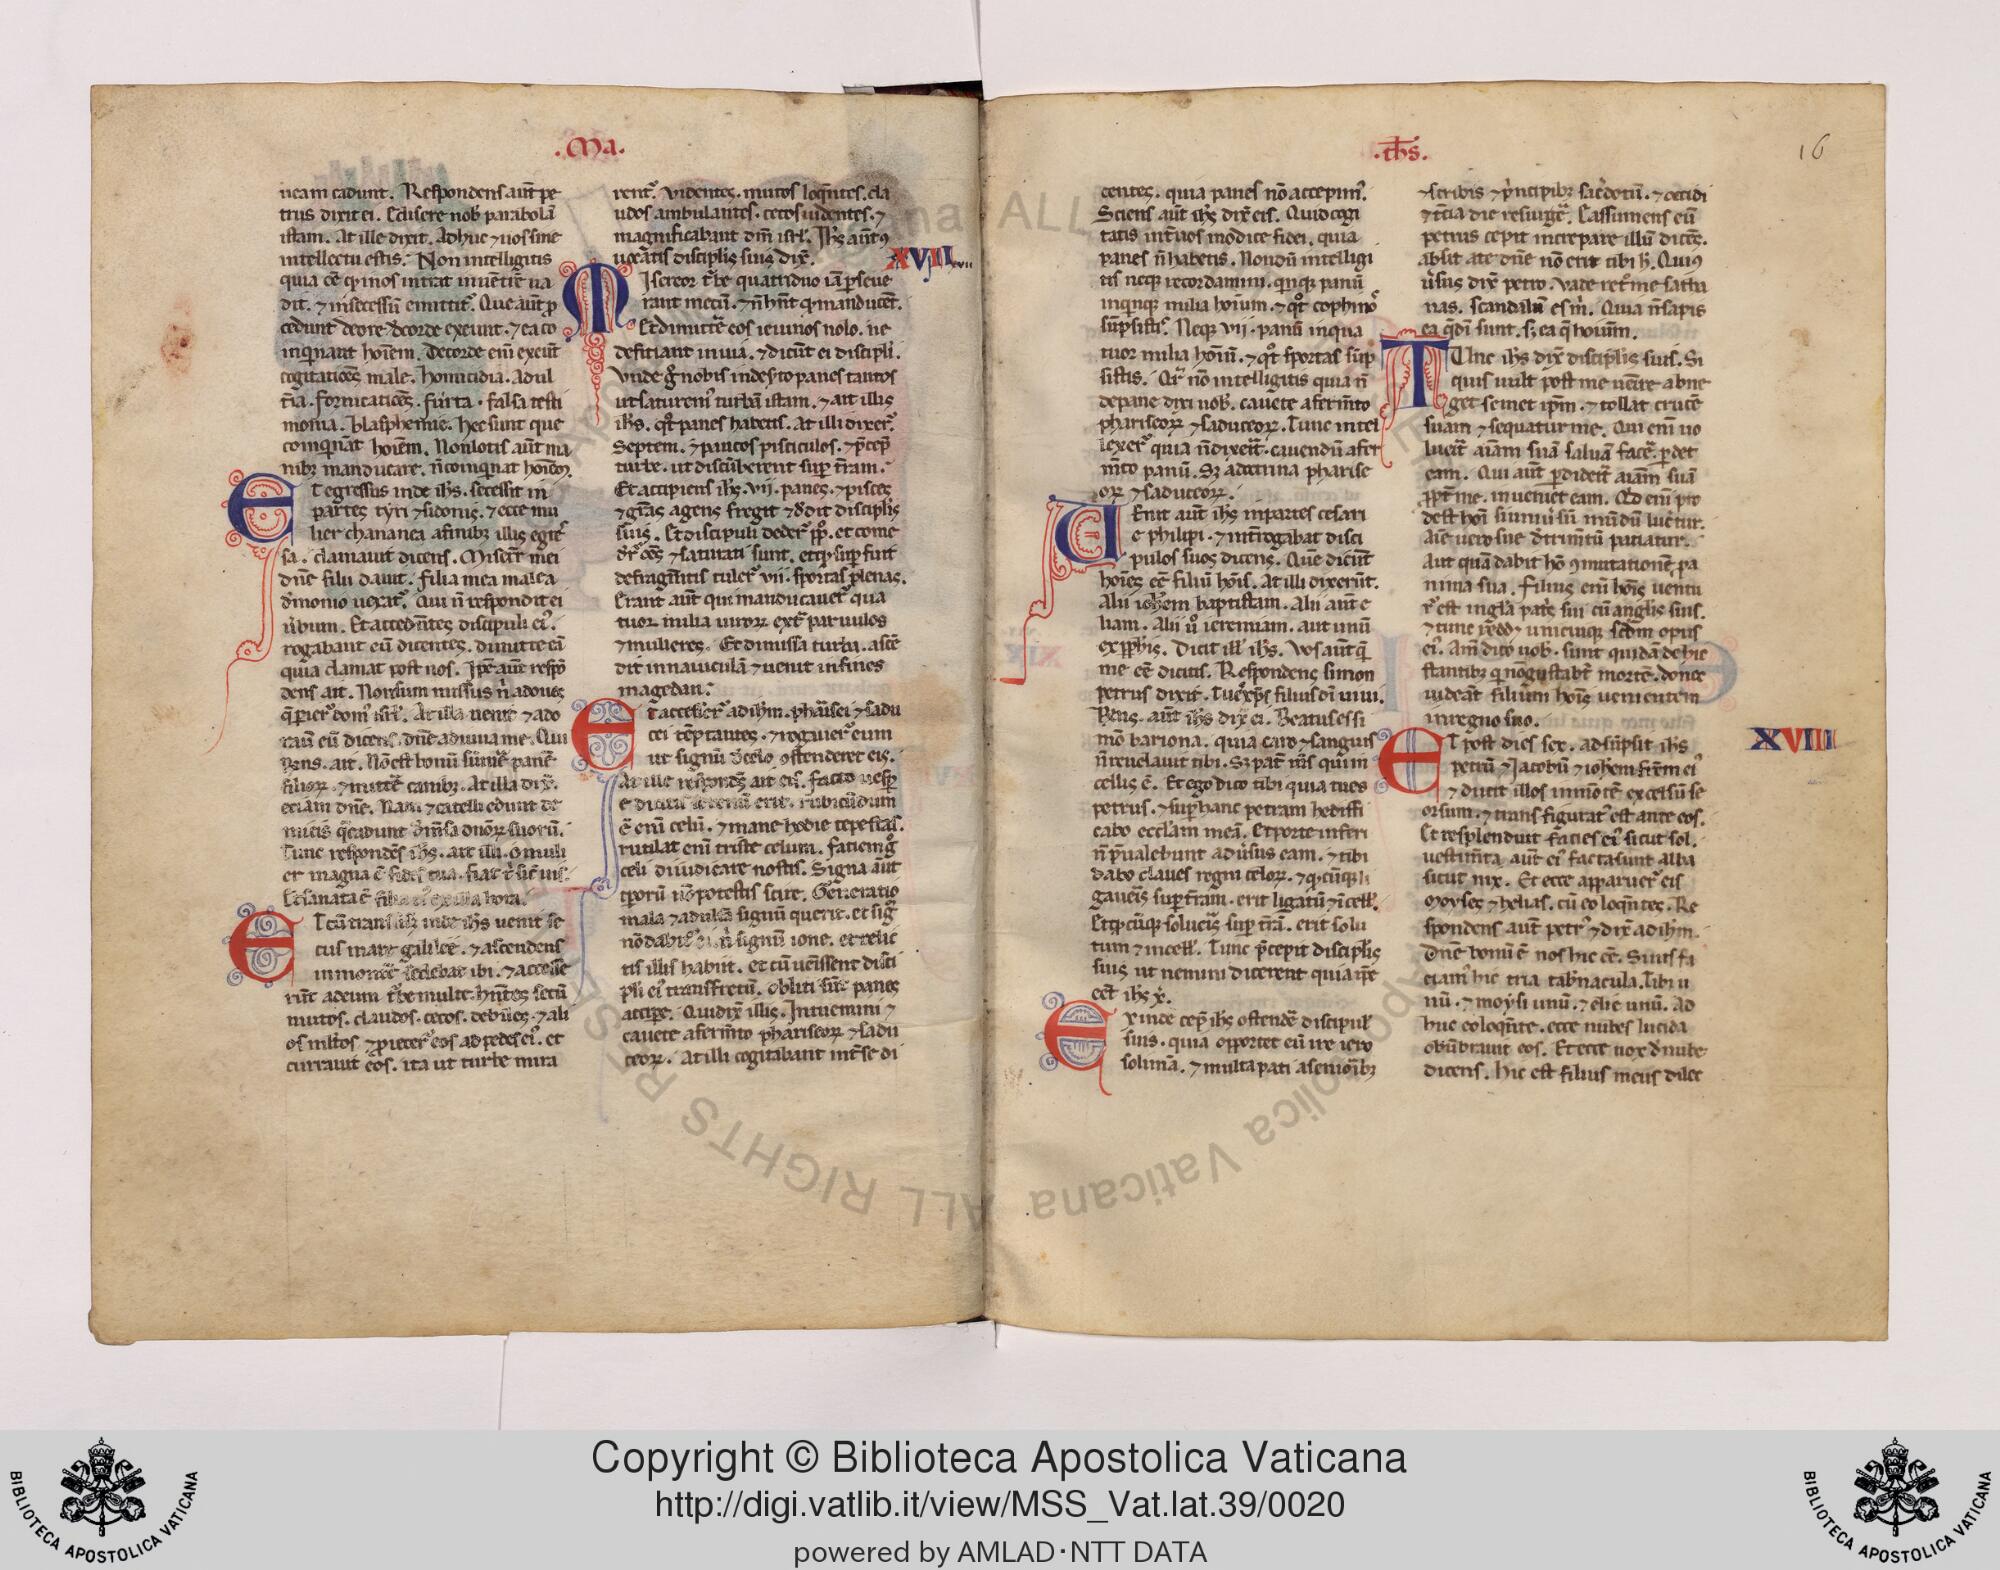 .Ma.
ueam cadunt. Respondens aut̄ pe
trus dixit ei. Edisere nob̄ parabolā
istam. At ille dixit. Adhuc ⁊ uos sine
intellectu estis. Non intelligitis
quia oē qͥ in os intrat in uētrē ua
dit. ⁊ in secessū emittit᷑. Que aut̄ p̄
cedunt de ore. de corde exeunt. ⁊ ea co
inquinant hoīem. De corde eni exeūt
cogitatiōes male. homicidia. Adul
t̄ia. fornicatiōes. furta. falsa testi
monia. blasphemie. hec sunt que
coinquināt hoīem. Non lotis aut̄ ma
nibꝫ manducare. n̄ coinquinat hoīem.
ET egressus inde ih̄s. secessit in
partes tyri ⁊ sidonis. ⁊ ecce mu
lier chananea a finibꝫ illis egrē
sa. clamauit dicens. Miserē mei
dn̄e fili dauit. filia mea male a
demonio uexat᷑. Qui n̄ respondit ei
ūbum. Et accedētes discipuli ei᷒.
rogabant eū dicentes. dimitte eā
quia clamat post nos. Ipse aut̄ respō
dens ait. Non sum missus n̄ ad oues
q̄ perier̄ dom᷒ isrl̄. At illa uenit ⁊ ado
rauit eū dicens. dn̄e adiuua me. Qui
rn̄ns. ait. Nō est bonū sumē panē
filiorꝫ. ⁊ mittē canibꝫ. At illa dix̄.
etiam dn̄e. Nam ⁊ catelli edunt de
micis q̄ cadunt de mēsa dn̄orꝫ suorū.
Tunc respondēs ih̄s. ait illi. O muli
er magna ē fides tua. fiat t̄ sic̄ uis.
Et sanata ē filia ei᷒ ex illa hora.
ET cū transisset inde ih̄s uenit se
cus mare galilee. ⁊ ascendens
in montē sedebat ibi. ⁊ accesse
rūt ad eum t̄be multe. hn̄tes secū
mutos. claudos. cecos. debiles. ⁊ ali
os mltos ⁊ piecer̄ eos ad pedes ei᷒. et
curauit eos. ita ut turbe mira
rent᷑. videntes. mutos loquētes. cla
udos ambulantes. cecos uidentes. ⁊
magnificabant dm̄ isrl̄. Ih̄s aut̄ ꝯ
uocatis disciplis suis dix̄.
XVII xvii
MIsereor t̄be quatriduo iā pseue
rant mecū. ⁊ n̄ hn̄t qͥ manducēt.
Et dimittē eos ieiunos nolo. ne
defitiant in uia. ⁊ dicūt ei discipli.
Vnde g̊ nobis in desto panes tantos
ut saturem᷒ turbā istam. ⁊ ait illis
ih̄s. qͦt panes habetis. At illi dixer̄.
Septem. ⁊ paucos pisciculos. ⁊ p̄cep̄
turbe. ut discūberent sup t̄ram.
Et accipiens ih̄s. vii. panes. ⁊ pisces
⁊ gr̄as agens fregit ⁊ dedit disciplis
suis. Et discipuli deder̄ pp̄lo. et come
der̄ oēs ⁊ saturati sunt. et qͦ supfuit
de fragmētis tuler̄ vii. sportas plenas.
Erant aut̄ qui manducauer̄ qua
tuor milia uirorꝫ ext̄ paruulos
⁊ mulieres. Et dimissa turba. ascē
dit in nauiculā ⁊ uenit in fines
magedan.
ET accesser̄ ad ihm̄. pharisei ⁊ sadu
cei tēptantes. ⁊ rogauer̄ eum
ut signū de celo ostenderet eis.
At ille respondēs ait eis. facto uesp̄e
ē eni celū. ⁊ mane hodie tēpestas.
rutilat eni triste celum. faciem g̊
celi diiudicare nostis. Signa aut̄
tp̄orū nō potestis scire. Generatio
mala ⁊ adultā signū querit. et sig̊
nō dabit᷑ ei n̄ signū ione. et relic
tis illis habiit. et cū uenissent disci
pli ei᷒ transfretū. obliti sūt panes
accipe. Qui dix̄ illis. Intuemini ⁊
cauete a fermēto phariseorꝫ ⁊ sadu
ceorꝫ. At illi cogitabant int̄ se di
.ths.
16
centes. quia panes nō accepim᷒.
Sciens aut̄ ih̄s dix̄ eis. Quid cogi
tatis int̄ uos modice fidei. quia
panes n̄ habetis. Nondū intelligi
tis neqꝫ recordamini. qͥnqꝫ panū
in qͥnqꝫ milia hoīum. ⁊ qͦt cophinos
sūpsistis. Neqꝫ vii. panū in qua
tuor milia hoīū. ⁊ qͦt sportas sūp
sistis. Qr̄ nō intelligitis quia n̄
de pane dixi nob̄. cauete a fermēto
phariseorꝫ ⁊ saduceorꝫ. Tunc intel
lexer̄ quia n̄ dixerit. cauendū a fer
mēto panū. Sꝫ a doctrina pharise
orꝫ ⁊ saduceorꝫ.
UEnit aut̄ ih̄s in partes cesari
e philipi. ⁊ int̄rogabat disci
pulos suos dicens. Quē dicūt
hoīes eē filiū hoīs. At illi dixerūt.
Alii ioh̄em baptistam. Alii aut̄ e
liam. Alii ū ieremiam. aut unū
ex pph̄is. Dicit ill̄ ih̄s. Vos aut̄ q̄
me eē dicitis. Respondens simon
petrus dixit. Tu es xp̄s filius dī uiui.
Rn̄s. aut̄ ih̄s dix̄ ei. Beatus es si
mō bariona. quia caro ⁊ sanguis
n̄ reuelauit tibi. Sꝫ pat̄ ms̄ qui in
celis ē. Et ego dico tibi quia tu es
petrus. ⁊ sup hanc petram hediffi
cabo ecclam meā. Et porte inferi
n̄ p̄ualebunt aduersus eam. ⁊ tibi
dabo claues regni celorꝫ. ⁊ qͦcūqꝫ li
gaueris sup t̄ram. erit ligatū ⁊ ī cell̄.
Et qͦcūqꝫ soluer̄is sup t̄rā. erit solu
tum ⁊ in cell̄. Tunc p̄cepit disciplis
suis ut nemini dicerent quia ip̄e
eēt ih̄s xp̄.
EXinde cep̄ ih̄s ostendē discipul̄
suis. quia opportet eū ire iero
solimā. ⁊ multa pati a seniorib
⁊ scribis ⁊ p̄ncipibꝫ sac̄dotū. ⁊ occidi
⁊ t̄cia die resurgē. Et assumens eū
petrus cepit increpare illū dicēs.
absit a te dn̄e nō erit tibi h̄. Qui ꝯ
ūsus dix̄ petro. Vade ret̄ me satha
nas. scandalū es m̄. Quia n̄ sapis
ea q̄ dī sunt. sꝫ ea q̄ hoīum.
TUnc ih̄s dix̄ disciplis suis. Si
quis uult post me uēire abne
get semet ip̄m. ⁊ tollat crucē
suam ⁊ sequatur me. Qui eni uo
luerit aīam suā saluā facē. p̄det
eam. Qui aut̄ p̄diderit aīam suā
ppt̄ me. inueniet eam. Qd̄ eni pro
dest hoī si uniūsū mūdū lucret᷑.
aīe uero sue det̄mtū patiatur.
Aut quā dabit hō ꝯmutationē p̄ a
nima sua. Filius eni hoīs uentu
r᷒ est in gl̄a patris sui cū anglis suis.
⁊ tunc redd; unicuiqꝫ scdm opus
ei᷒. Am̄ dico uob̄. sunt quidā de hic
stantibꝫ qͥ nō gustabt̄ mortē. donec
uideāt filium hoīs uenientem
in regno suo.
XVIII
ET post dies sex. adsūpsit ih̄s
petrū ⁊ Jacobū ⁊ ioh̄em fr̄em ei᷒
⁊ ducit illos in mōtē excelsū se
orsum. ⁊ transfigurat᷒ est ante eos.
Et resplenduit facies ei᷒ sicut sol.
uestimēta aut̄ ei᷒ facta sunt alba
sicut nix. Et ecce apparuer̄ eis
Moyses ⁊ helias. cū eo loquētes. Re
spondens aut̄ petr᷒ ⁊ dix̄ ad ihm̄.
Dn̄e bonū ē nos hic eē. Si uis fa
ciam᷒ hic tria tabn̄acula. Tibi u
nū. ⁊ moysi unū. ⁊ elie unū. Ad
huc eo loquēte. ecce nubes lucida
obūbrauit eos. Et ecce uox de nube
dicens. hic est filius meus dilec
Copyright © Biblioteca Apostolica Vaticana
http://digi.vatlib.it/view/MSS_Vat.lat.39/0020
powered by AMLAD·NTT DATA
BIBLIOTECA APOSTOLICA VATICANA
BIBLIOTECA APOSTOLICA VATICANA